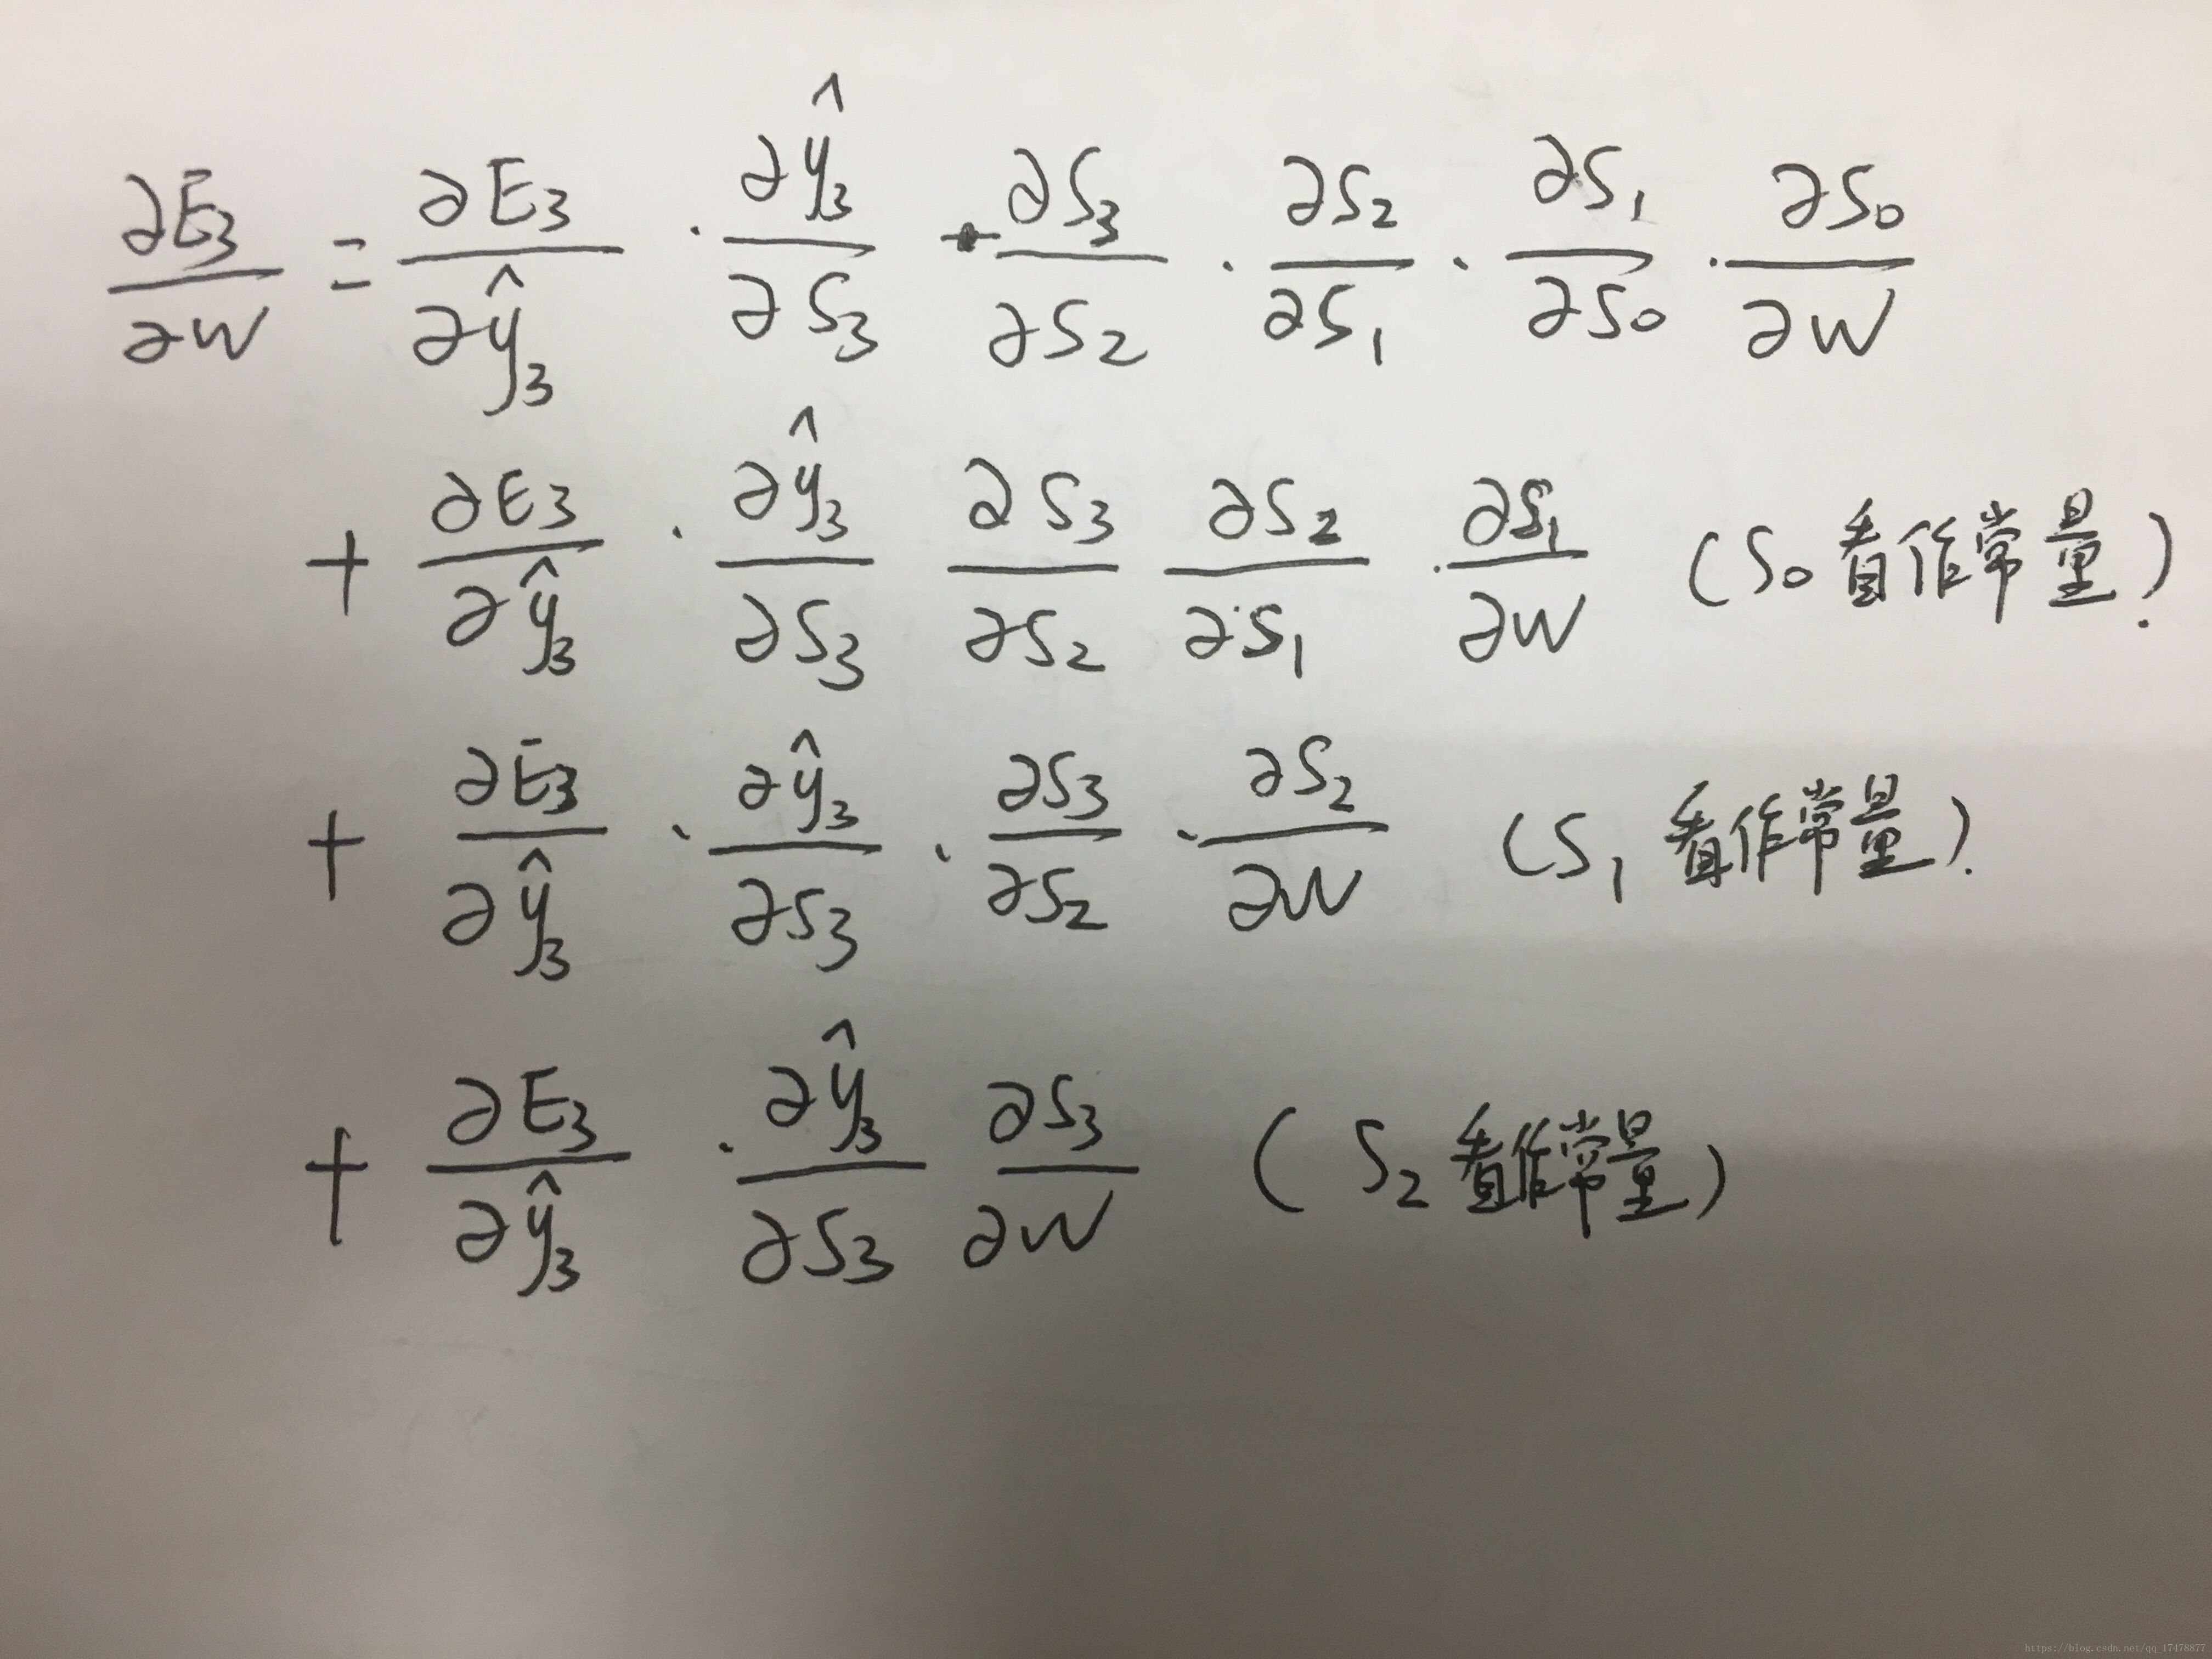 ∂E₃/∂W = ∂E₃/∂ŷ₃ · ∂ŷ₃/∂S₃ · ∂S₃/∂S₂ · ∂S₂/∂S₁ · ∂S₁/∂S₀ · ∂S₀/∂W
+ ∂E₃/∂ŷ₃ · ∂ŷ₃/∂S₃ ∂S₃/∂S₂ ∂S₂/∂S₁ · ∂S₁/∂W (S₀ 看作常量).
+ ∂E₃/∂ŷ₃ · ∂ŷ₃/∂S₃ · ∂S₃/∂S₂ · ∂S₂/∂W (S₁ 看作常量).
+ ∂E₃/∂ŷ₃ · ∂ŷ₃/∂S₃ ∂S₃/∂W (S₂ 看作常量)
https://blog.csdn.net/qq_17478877